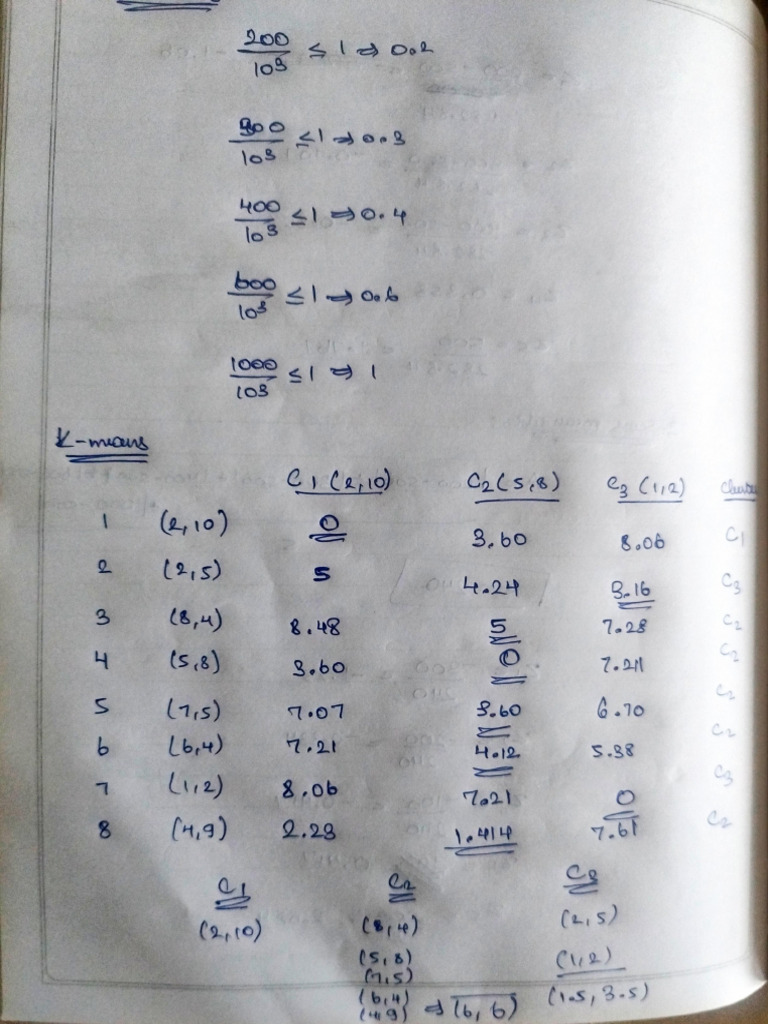 200/10³ ≤ 1 ⇒ 0.2
300/10³ ≤ 1 ⇒ 0.3
400/10³ ≤ 1 ⇒ 0.4
600/10³ ≤ 1 ⇒ 0.6
1000/10³ ≤ 1 ⇒ 1
K-means
C1 (2,10) C2 (5,8) C3 (1,2)
1 (2,10) 0 3.60 8.06 C1
2 (2,5) 5 4.24 3.16 C3
3 (8,4) 8.48 5 7.28 C2
4 (5,8) 3.60 0 7.21 C2
5 (7,5) 7.07 3.60 6.70 C2
6 (6,4) 7.21 4.12 5.38 C2
7 (1,2) 8.06 7.21 0 C3
8 (4,9) 2.23 1.414 7.61 C2
C1 C2 C3
(2,10) (8,4) (2,5)
(5,8) (1,2)
(7,5) (1.5, 3.5)
(6,4)
(4,9) ⇒ (6, 6)